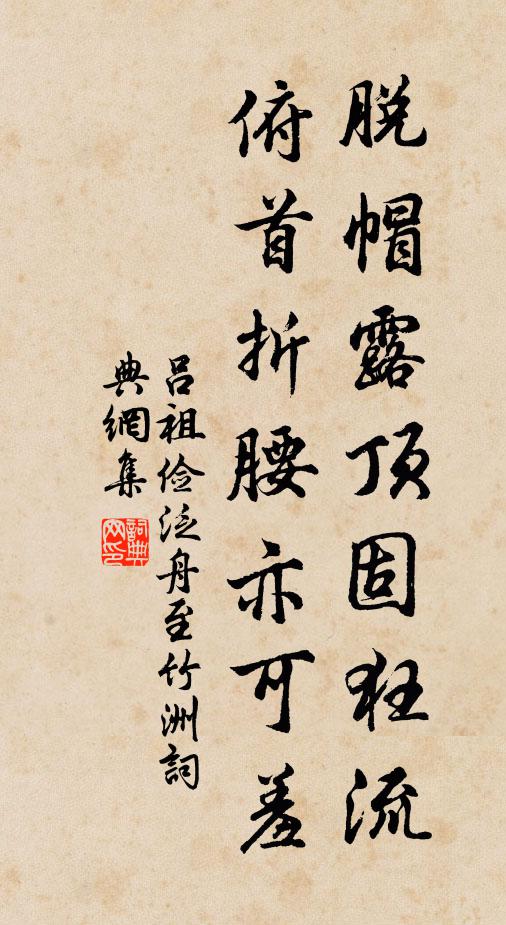 脱帽露顶固狂流
俯首折腰亦可羞
吕祖俭泛舟至竹洲詞
典網集
詞典
网印